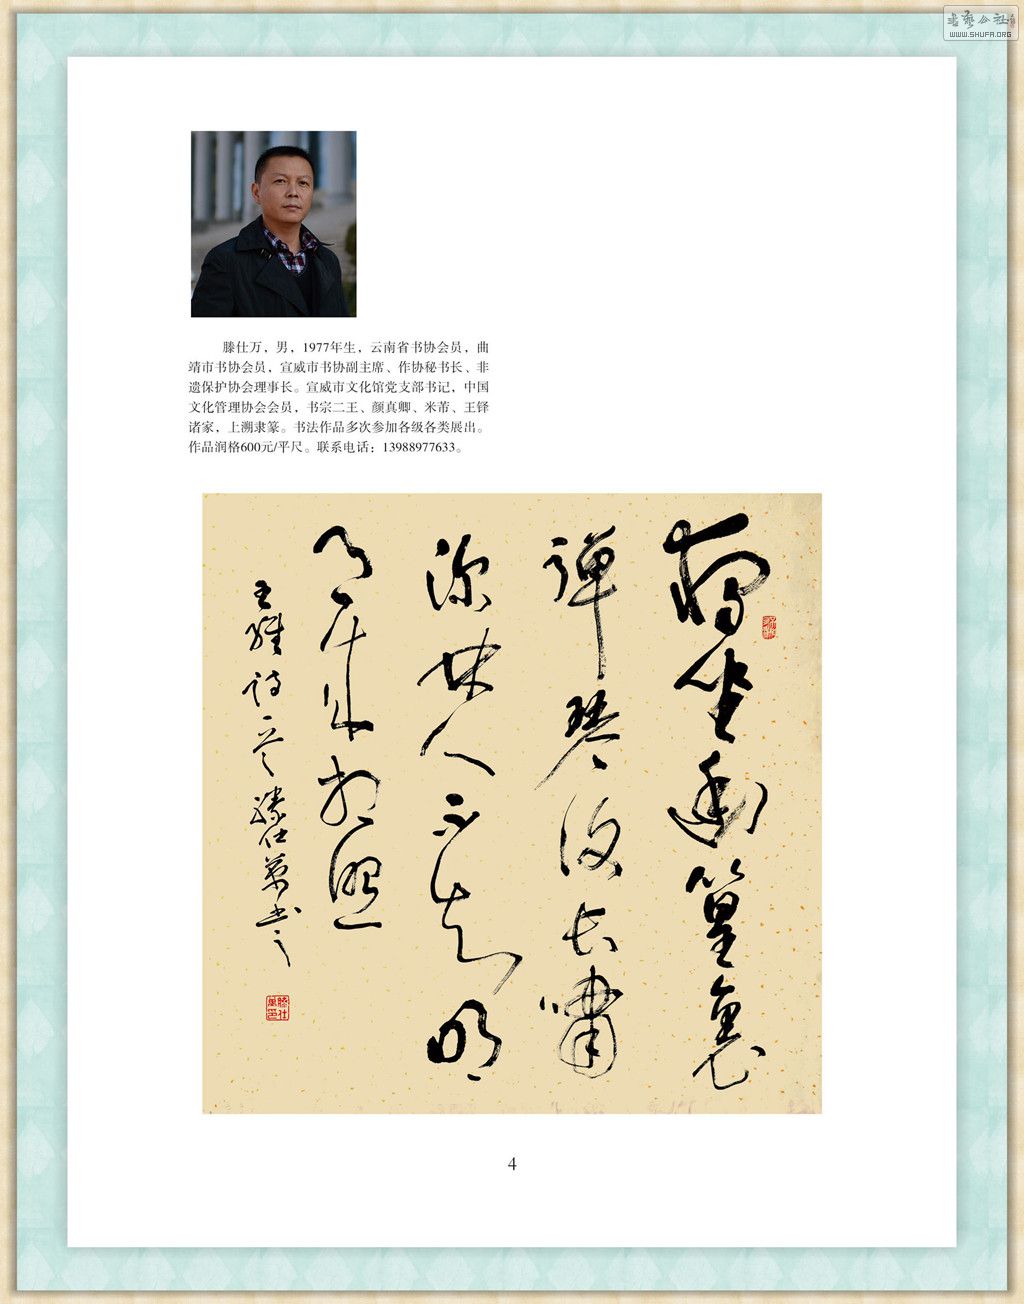 書藝公社
WWW.SHUFA.ORG
滕仕万，男，1977年生，云南省书协会员，曲
靖市书协会员，宣威市书协副主席、作协秘书长、非
遗保护协会理事长。宣威市文化馆党支部书记，中国
文化管理协会会员，书宗二王、颜真卿、米芾、王铎
诸家，上溯隶篆。书法作品多次参加各级各类展出。
作品润格600元/平尺。联系电话：13988977633。
獨坐幽篁裏
彈琴復長嘯
深林人不知明
月来相照
王維詩一首滕仕萬书
滕仕萬印
4